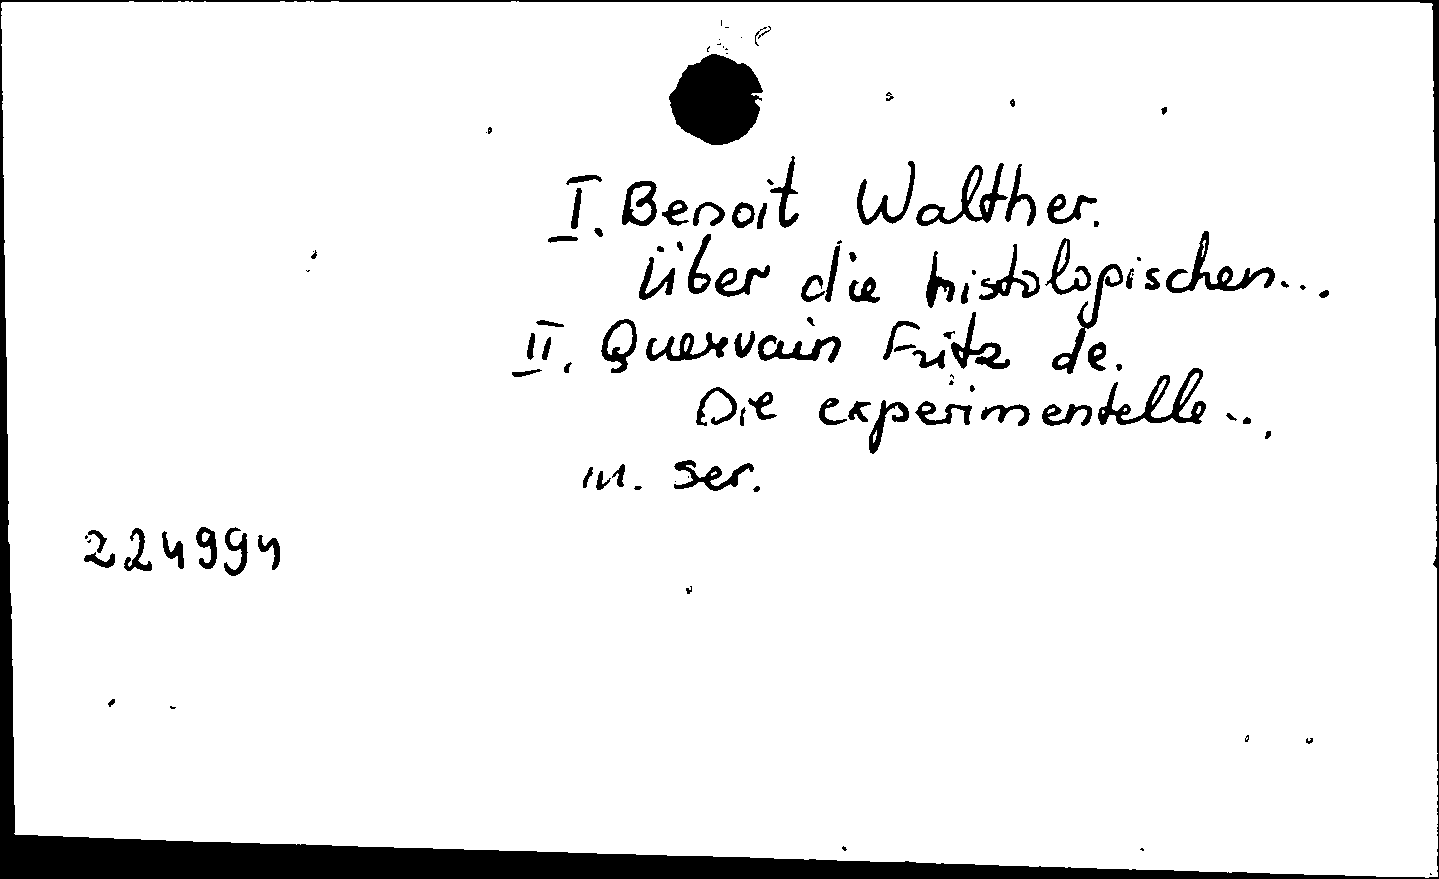 I. Benoit Walther.
Über die histologischen...
II. Quervain Fritz de.
Die experimentelle...
III. ser.
224994